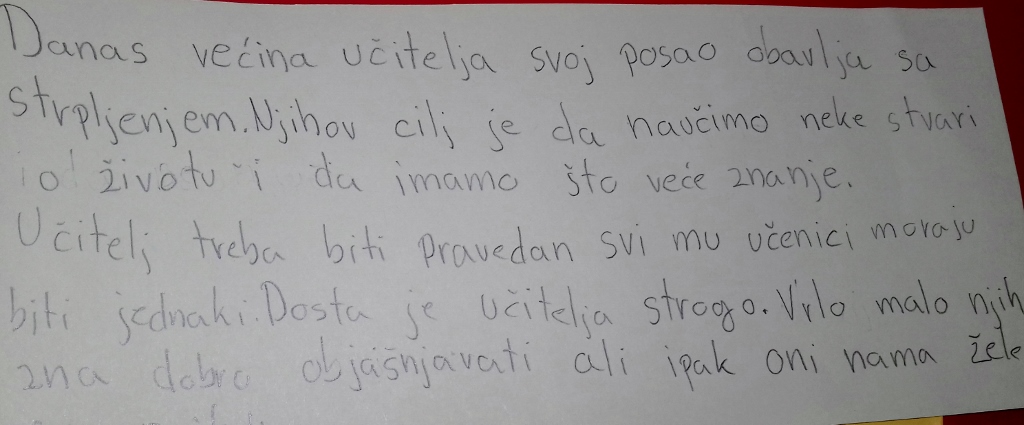 Danas većina učitelja svoj posao obavlja sa
strpljenjem. Njihov cilj je da naučimo neke stvari
o životu i da imamo što veće znanje.
Učitelj treba biti pravedan svi mu učenici moraju
biti jednaki. Dosta je učitelja strogo. Vrlo malo njih
zna dobro objašnjavati ali ipak oni nama žele